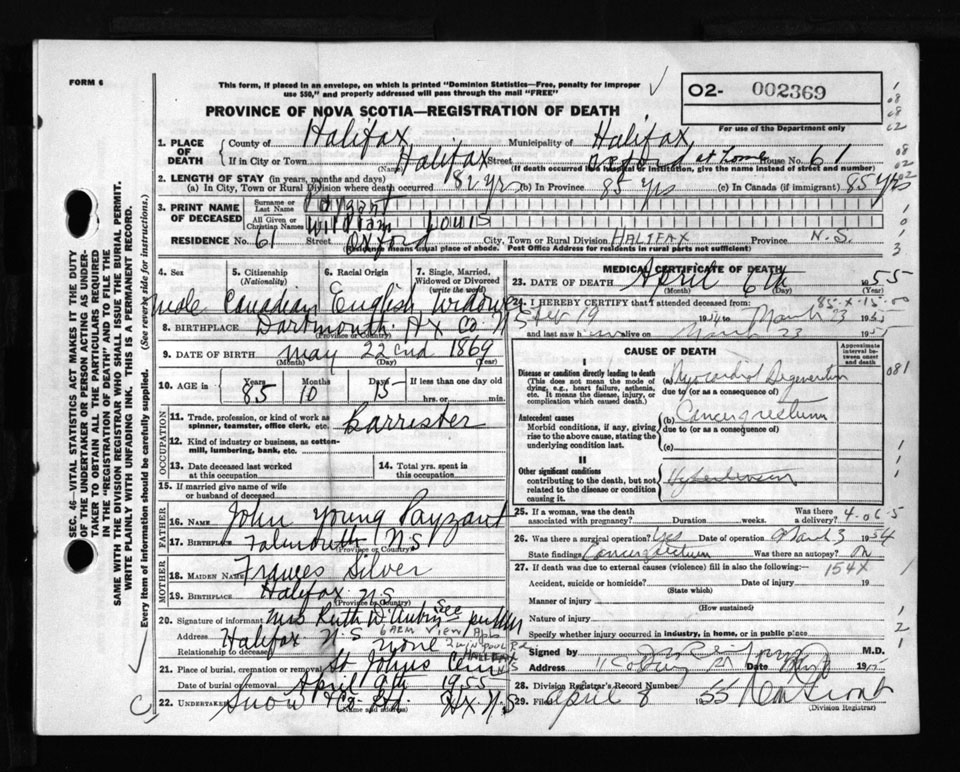 FORM 6
This form, if placed in an envelope, on which is printed "Dominion Statistics—Free, penalty for improper
use $50," and properly addressed will pass through the mail "FREE"
O2- 002369
For use of the Department only
PROVINCE OF NOVA SCOTIA—REGISTRATION OF DEATH
1. PLACE OF DEATH
County of Halifax Municipality of Halifax
If in City or Town Halifax Street Oxford at home House No. 61
(Name) (If death occurred in a hospital or institution, give its name instead of street and number)
2. LENGTH OF STAY (in years, months and days)
(a) In City, Town or Rural Division where death occurred 82 yrs (b) In Province 85 yrs (c) In Canada (if immigrant) 85 yrs
3. PRINT NAME OF DECEASED
Surname or Last Name Payzant
All Given or Christian Names William Louis
RESIDENCE No. 61 Street Oxford City, Town or Rural Division HALIFAX Province N.S.
Residence means usual place of abode. Post Office Address for residents in rural parts not sufficient)
4. Sex male
5. Citizenship (Nationality) Canadian
6. Racial Origin English
7. Single, Married, Widowed or Divorced (write the word) Widow
8. BIRTHPLACE Dartmouth Hx Co. N S
(Province or Country)
9. DATE OF BIRTH may 22nd 1869
(Month) (Day) (Year)
10. AGE in Years 85 Months 10 Days 15 If less than one day old
hrs. or min.
OCCUPATION
11. Trade, profession, or kind of work as spinner, teamster, office clerk, etc. Barrister
12. Kind of industry or business, as cotton-mill, lumbering, bank, etc.
13. Date deceased last worked at this occupation
14. Total yrs. spent in this occupation
15. If married give name of wife or husband of deceased
FATHER
16. NAME John Young Payzant
17. BIRTHPLACE Falmouth N S
(Province or Country)
MOTHER
18. MAIDEN NAME Frances Silver
19. BIRTHPLACE Halifax N S
(Province or Country)
20. Signature of informant Mrs Ruth W.
Address Halifax N. S
Relationship to deceased none
HALIFAX N.S
21. Place of burial, cremation or removal St Johns Cem
Date of burial or removal April 9th 1955
22. UNDERTAKER Snow & Co. Ltd. Hx N. S
(Name and address)
MEDICAL CERTIFICATE OF DEATH
23. DATE OF DEATH April 6th 1955
(Month) (Day)
85-X-15-00
24. I HEREBY CERTIFY that I attended deceased from:
Feb 19 19 to March 23 1955
and last saw him alive on March 23 195
CAUSE OF DEATH
Approximate interval between onset and death
I
Disease or condition directly leading to death
(This does not mean the mode of dying, e.g., heart failure, asthenia, etc. It means the disease, injury, or complication which caused death.)
(a) Myocardial Degeneration
due to (or as a consequence of)
Antecedent causes
Morbid conditions, if any, giving rise to the above cause, stating the underlying condition last.
(b) Cancer of rectum
due to (or as a consequence of)
(c)
II
Other significant conditions
contributing to the death, but not related to the disease or condition causing it.
Hypertension
081
25. If a woman, was the death associated with pregnancy? Duration weeks. Was there a delivery? 4-06-5
26. Was there a surgical operation? Yes Date of operation March 3 1954
State findings Cancer of rectum Was there an autopsy? no
27. If death was due to external causes (violence) fill in also the following:- 154X
Accident, suicide or homicide? Date of injury 19
(State which)
Manner of injury
(How sustained)
Nature of injury
Specify whether injury occurred in industry, in home, or in public place
Signed by M.D.
Address Date 19
28. Division Registrar's Record Number
29. Filed April 8 1955
(Division Registrar)
SEC. 46—VITAL STATISTICS ACT MAKES IT THE DUTY
OF THE UNDERTAKER OR PERSON ACTING AS UNDERTAKER
TO OBTAIN ALL THE PARTICULARS REQUIRED
IN THE "REGISTRATION OF DEATH" AND TO FILE THE
SAME WITH THE DIVISION REGISTRAR WHO SHALL ISSUE THE BURIAL PERMIT.
WRITE PLAINLY WITH UNFADING INK. THIS IS A PERMANENT RECORD.
Every item of information should be carefully supplied. (See reverse side for instructions.)